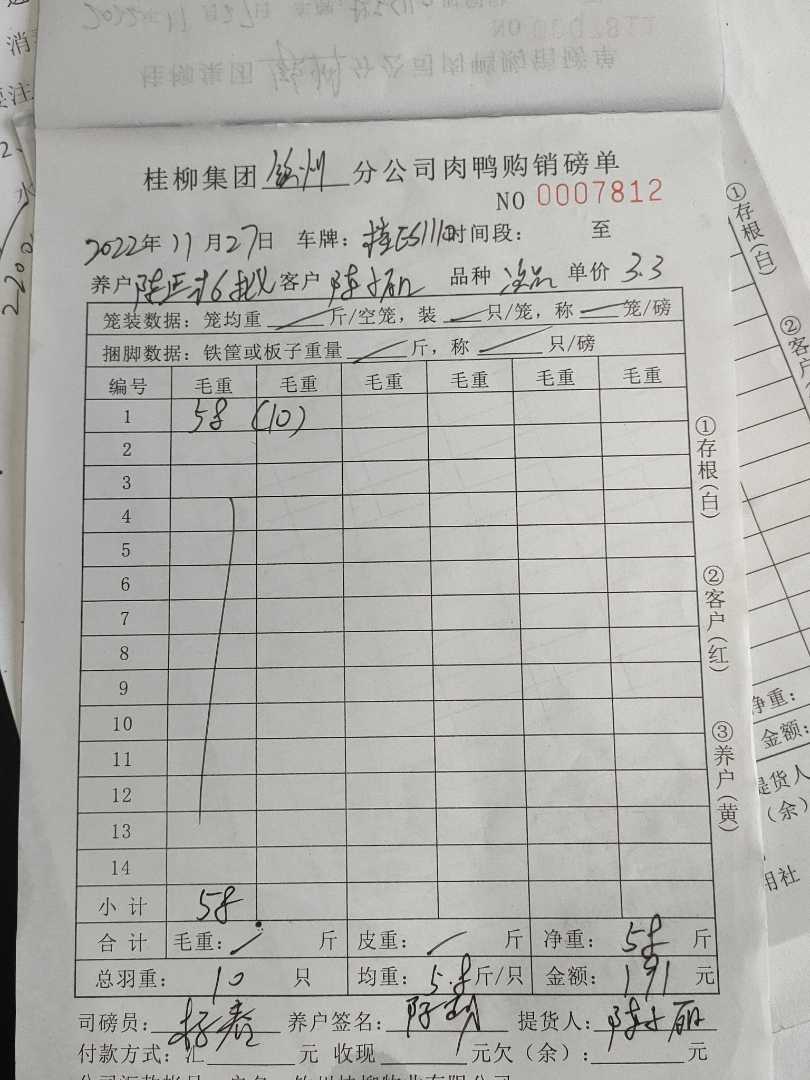 桂柳集团 钦州 分公司肉鸭购销磅单
NO 0007812
2022年 11月27日 车牌： 时间段： 至
养户 客户 陈小丽 品种 次品 单价 3.3
笼装数据：笼均重 斤/空笼，装 只/笼，称 笼/磅
捆脚数据：铁筐或板子重量 斤，称 只/磅
编号 毛重 毛重 毛重 毛重 毛重 毛重
1 58 (10)
2
3
4
5
6
7
8
9
10
11
12
13
14
小 计 58
合 计 毛重： 斤 皮重： 斤 净重： 58 斤
总羽重： 10 只 均重： 5.8 斤/只 金额： 191 元
司磅员： 养户签名： 提货人： 陈小丽
付款方式：汇 元 收现 元欠（余）： 元
①存根(白)
②客户(红)
③养户(黄)
①存根(白)
②客户
净重：
金额：
提货人
（余）
用社